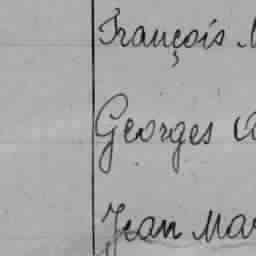 François
Georges
Jean Mar